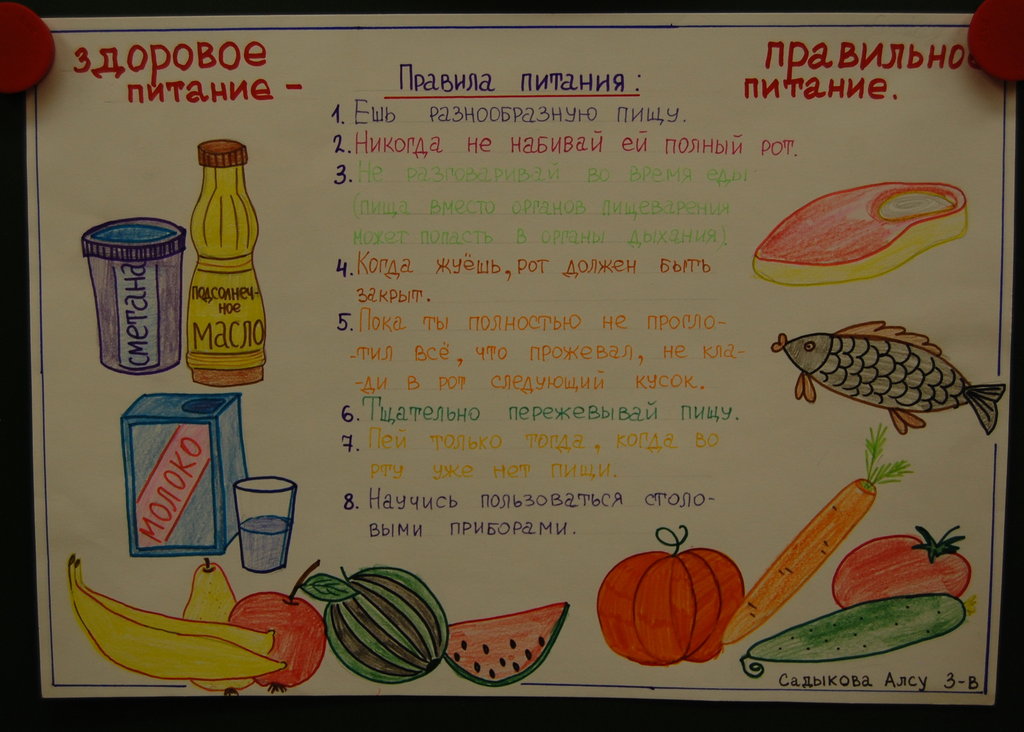 здоровое
питание -
правильное
питание.
Правила питания:
1. Ешь разнообразную пищу.
2. Никогда не набивай ей полный рот.
3. Не разговаривай во время еды
(пища вместо органов пищеварения
может попасть в органы дыхания).
4. Когда жуёшь, рот должен быть
закрыт.
5. Пока ты полностью не прогло-
-тил всё, что прожевал, не кла-
-ди в рот следующий кусок.
6. Тщательно пережевывай пищу.
7. Пей только тогда, когда во
рту уже нет пищи.
8. Научись пользоваться столо-
выми приборами.
сметана
подсолнеч-
ное
масло
молоко
Садыкова Алсу 3-в